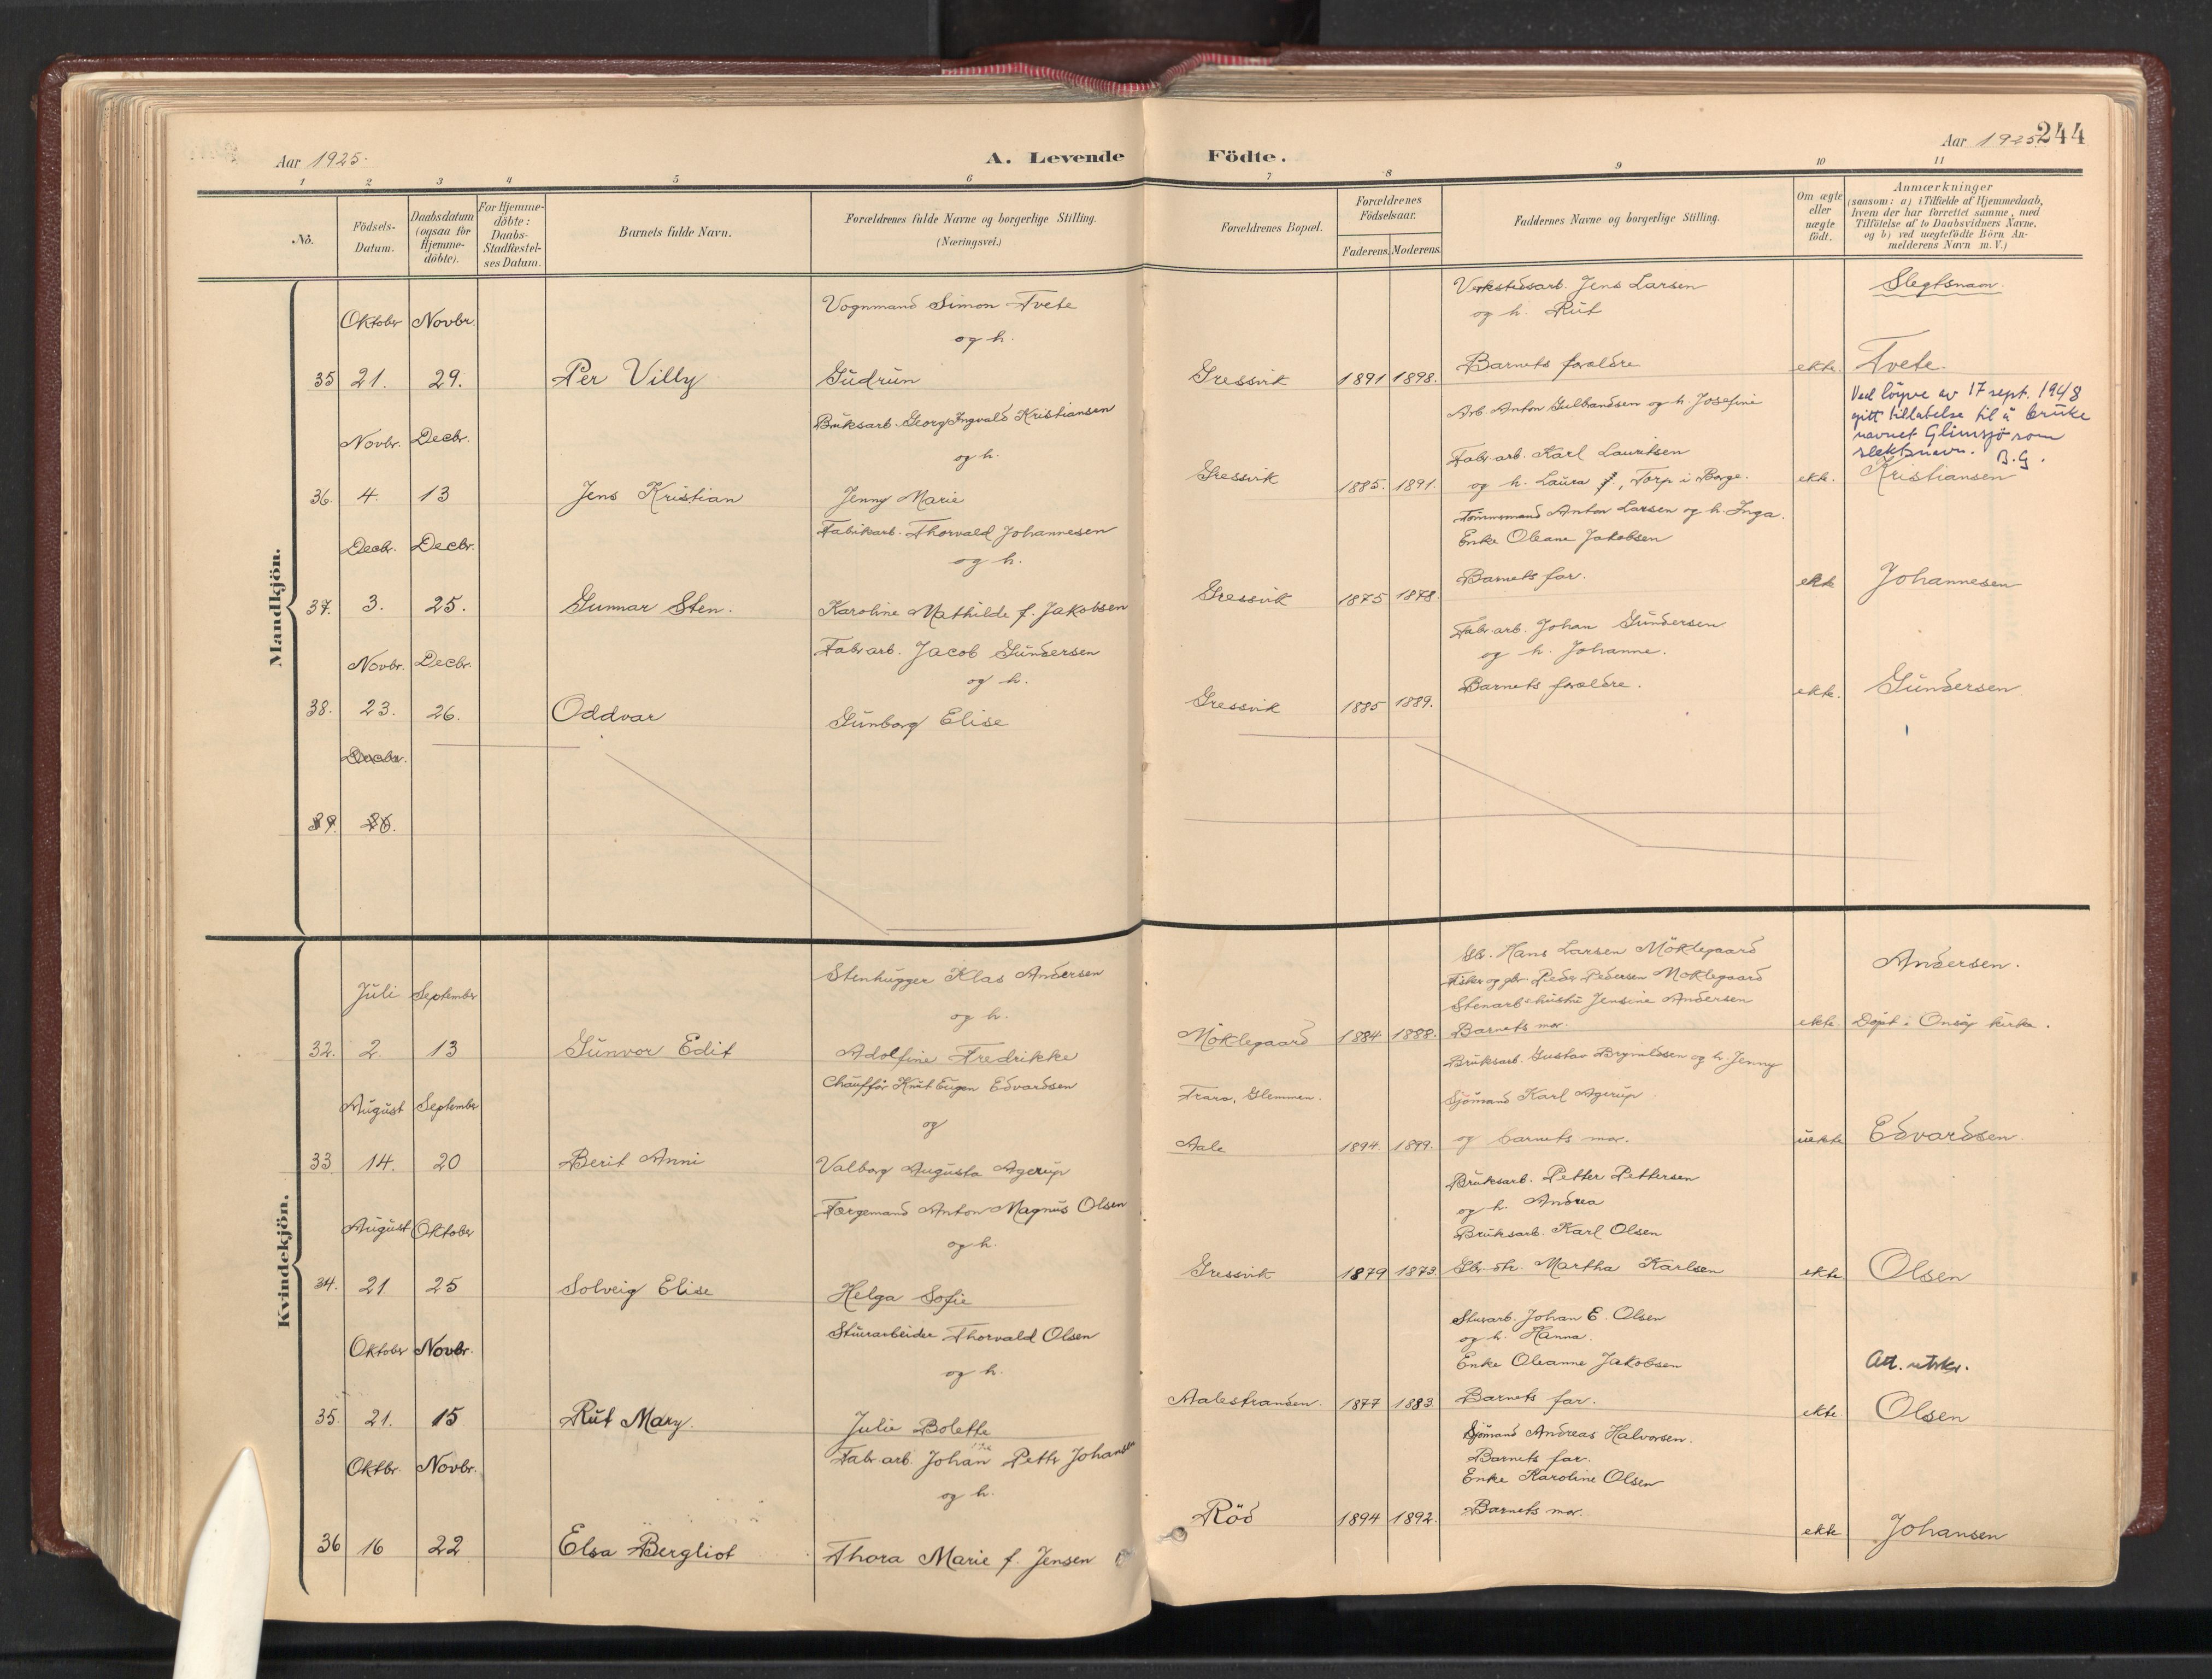 Aar 1925.
A. Levende Födte.
Aar 1925. 244
1 2 3 4 5 6 7 8 9 10 11
Nö.
Födsels-
Datum.
Daabsdatum
(ogsaa for
Hjemme-
döbte).
For Hjemme-
döbte:
Daabs-
Stadfæstel-
ses Datum.
Barnets fulde Navn.
Forældrenes fulde Navne og borgerlige Stilling.
(Næringsvei.)
Forældrenes Bopæl.
Forældrenes
Födselsaar.
Faderens. Moderens.
Faddernes Navne og borgerlige Stilling.
Om ægte
eller
uægte
født.
Anmærkninger
(saasom: a) i Tilfælde af Hjemmedaab,
hvem der har forrettet samme, med
Tilföielse af to Daabsvidners Navne,
og b) ved uægtefödte Börn An-
melderens Navn m. V.)
Mandkjön.
Slegtsnavn.
Oktober Novbr.
35 21. 29.
Per Villy
Vognmand Simon Tvete
og h.
Gudrun
Gressvik
1891 1898.
Verkstedsarb. Jens Larsen
og h. Rut
Barnets forældre
Arb. Anton Gulbandsen og h. Josefine
ekte.
Tvete.
Ved löyve av 17 sept. 1948
gitt tillatelse til å bruke
navnet Glimsjö som
slektsnavn. B.G.
Novbr. Decbr.
36. 4. 13
Jens Kristian
Bruksarb. Georg Ingvald Kristiansen
og h.
Jenny Marie
Gressvik
1885. 1891.
Fabr. arb. Karl Lauritsen
og h. Laura f., Torp i Borge.
Tömmermand Anton Larsen og h. Inga.
Enke Oleane Jakobsen
ekte.
Kristiansen
Decbr. Decbr.
37. 3. 25.
Gunnar Sten.
Fabikarb. Thorvald Johannesen
og h.
Karoline Mathilde f. Jakobsen
Gressvik
1875 1878.
Barnets far.
ekte
Johannesen
Novbr. Decbr.
38. 23. 26.
Oddvar
Fabr arb. Jacob Gundersen
og h.
Gunborg Elise
Gressvik
1885 1889.
Fabr. arb. Johan Gundersen
og h. Johanne.
Barnets forældre.
ekte.
Gundersen
Decbr.
39. 26.
Kvindekjön.
Juli September
32. 2. 13
Gunvor Edit
Stenhugger Klas Andersen
og h.
Adolfine Fredrikke
Möklegaard
1884 1888.
Gb. Hans Larsen Möklegaard
Fisker og gbr. Peder Pedersen Möklegaard
Stenarb. hustru Jensine Andersen
Barnets mor.
ekte.
Andersen.
Döpt i Onsöy kirke.
August September
33 14. 20
Berit Anni
Chaufför Knut Eugen Edvardsen
og
Valborg Augusta Agerup
Trara, Glemmen.
Aale
1894. 1899.
Bruksarb. Gustav Brynildsen og h. Jenny
Sjömand Karl Agerup
og barnets mor.
uekte
Edvardsen.
August Oktober
34. 21 25
Solveig Elise
Færgemand Anton Magnus Olsen
og h.
Helga Sofie
Gressvik
1879 1873.
Bruksarb. Petter Pettersen
og h. Andrea
Bruksarb. Karl Olsen
Gbr. dtr. Martha Karlsen
ekte
Olsen
Oktober Novbr.
35. 21. 15
Rut Mary.
Stuerarbeider Thorvald Olsen
og h.
Julie Bolette
Aalestranden.
1877 1883.
Stuearb. Johan E. Olsen
og h. Hanna.
Enke Oleanne Jakobsen
Barnets far.
ekte
Att. utskr.
Olsen
Oktbr. Novbr.
36 16 22
Elsa Bergliot
Fabr arb. Johan Petter Johansen
og h.
Thora Marie f. Jensen
Röd
1894 1892.
Sjömand Andreas Halvorsen.
Barnets far.
Enke Karoline Olsen
Barnets mor.
ekte
Johansen